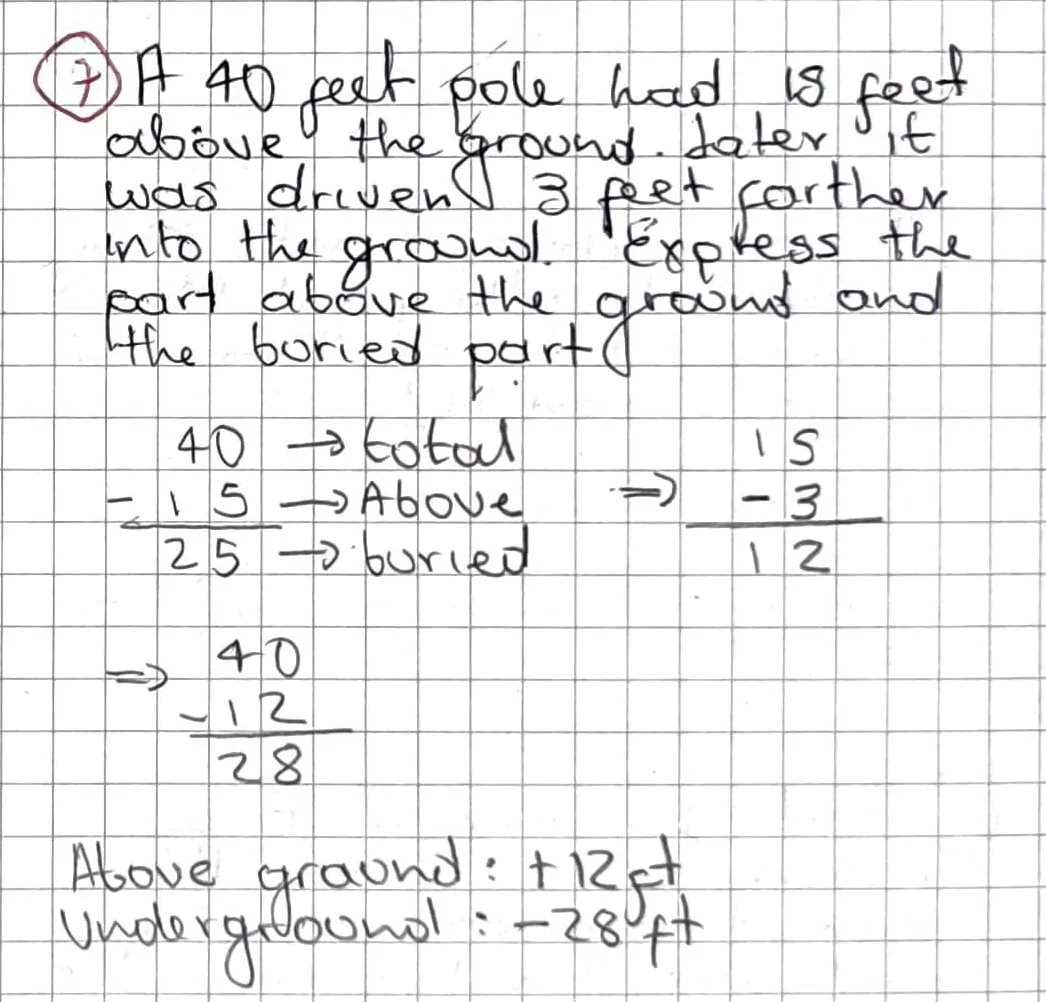 7 A 40 feet pole had 15 feet
above the ground. Later it
was driven 3 feet farther
into the ground. Express the
part above the ground and
the buried part.
40 → total
- 15 → Above
25 → buried
⇒ 15
- 3
12
⇒ 40
- 12
28
Above ground : +12 ft
Underground : -28 ft